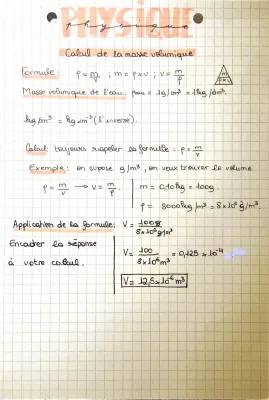 PHYSIQUE
physique
Calcul de la masse volumique
Formule: ρ = m/v ; m = ρ x v ; v = m/ρ
Masse volumique de l'eau: ρeau = 1g/cm³ = 1kg/dm³.
kg/m³ = kg.m⁻³ (l'inverse).
Calcul: toujours rappeler la formule: ρ = m/v
Exemple: on supose g/m³, on veux trouver le volume
ρ = m/v → v = m/ρ | m = 0,10kg = 100g.
ρ = 8000kg/m³ = 8x10⁶g/m³.
Application de la formule: V = 100g/8x10⁶g/m³
Encadrer la réponse V = 100/8x10⁶m³ = 0,125 x10⁻⁴
à votre calcul.
V = 12,5x10⁻⁶ m³